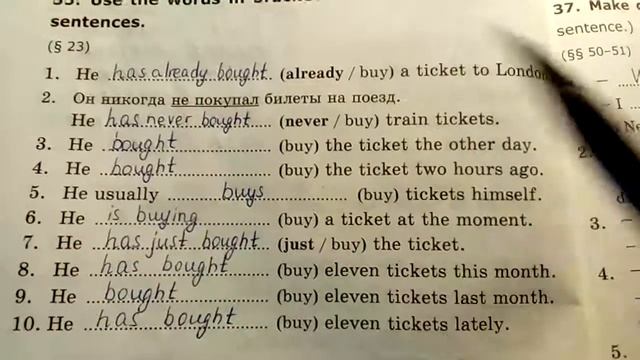 sentences.
(§ 23)
1. He has already bought (already / buy) a ticket to London.
2. Он никогда не покупал билеты на поезд.
He has never bought (never / buy) train tickets.
3. He bought (buy) the ticket the other day.
4. He bought (buy) the ticket two hours ago.
5. He usually buys (buy) tickets himself.
6. He is buying (buy) a ticket at the moment.
7. He has just bought (just / buy) the ticket.
8. He has bought (buy) eleven tickets this month.
9. He bought (buy) eleven tickets last month.
10. He has bought (buy) eleven tickets lately.
37. Make
sentence.)
(§§ 50–51)
– I
3. –
4. –
5.